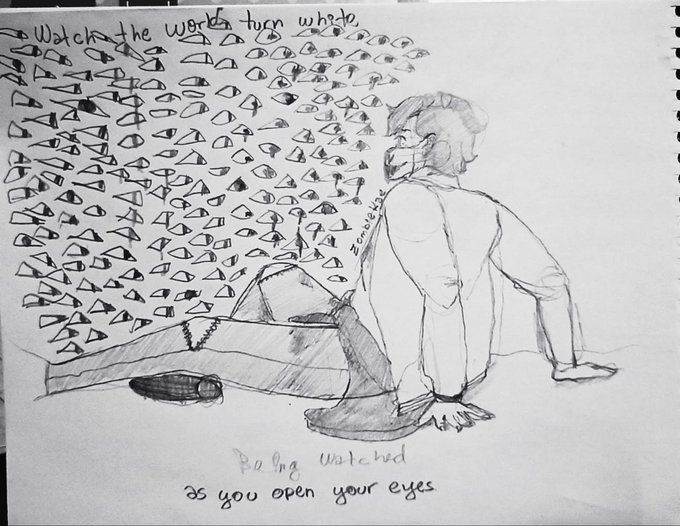 Watch the world turn white,
Zombiekae
Being watched
as you open your eyes